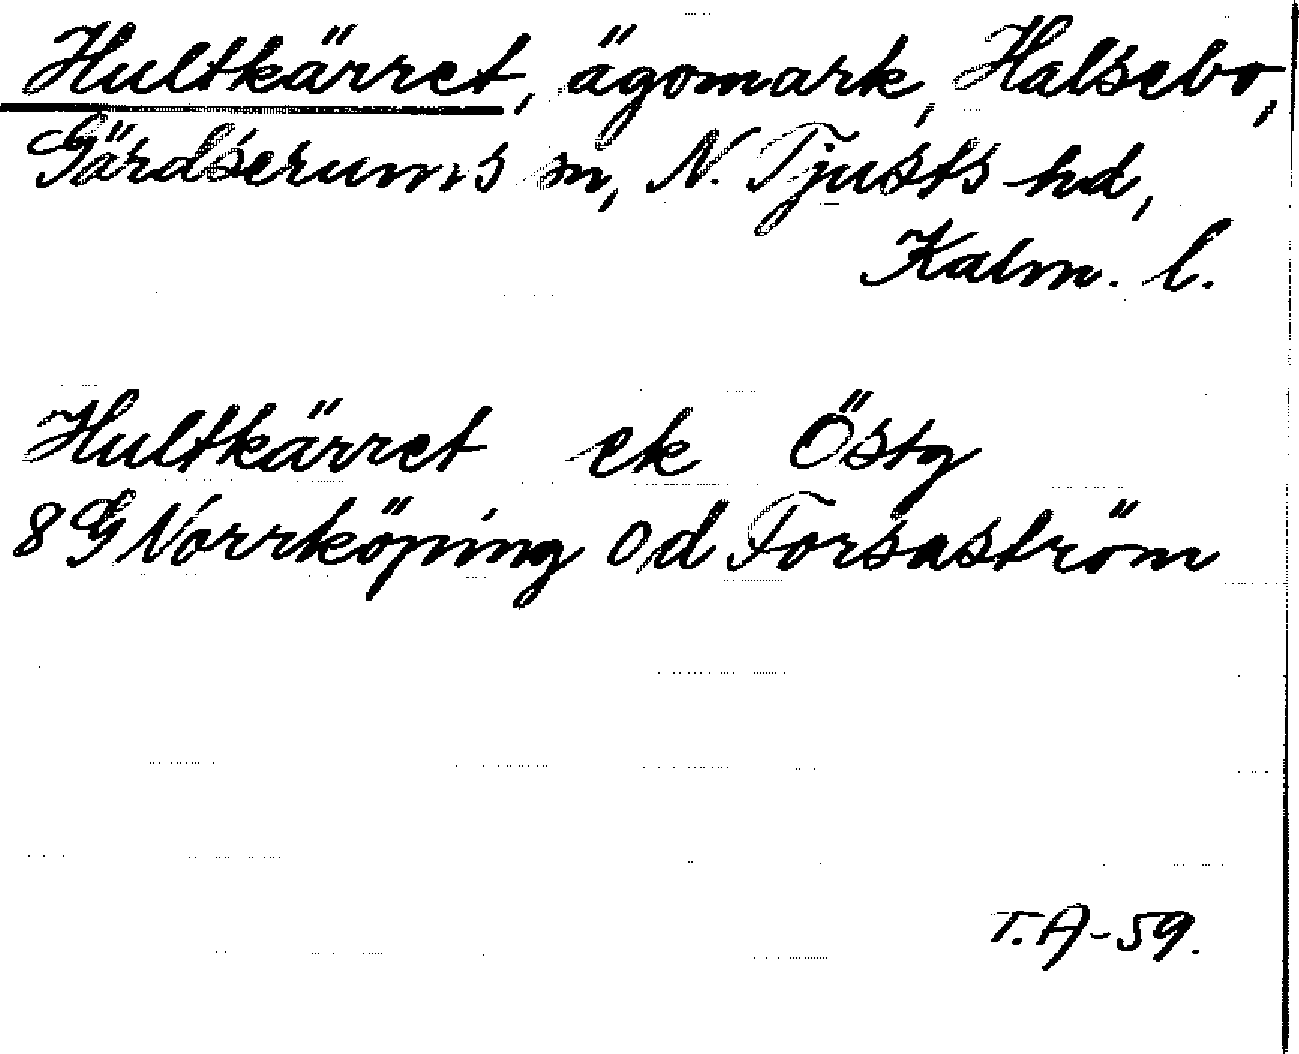 Hultkärret, ägomark, Halsebo,
Gärdserums sn, N. Tjusts hd,
Kalm. l.
Hultkärret ek Östg
8 G Norrköping 0 d Forsaström
T.A-59.